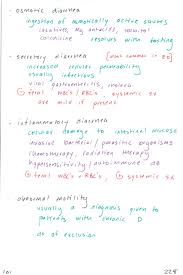 • osmotic diarrhea
ingestion of osmotically active solutes
laxatives, Mg antacids, sorbitol
resolves with fasting
• secretory diarrhea [most common in ED]
increased cellular permeability
usually infectious
viral gastroenteritis,
⊖ fecal WBC's / RBC's, systemic Sx
are mild if present
• inflammatory diarrhea
cellular damage to intestinal mucosa
invasive bacterial / parasitic organisms
chemotherapy, radiation therapy
hypersensitivity / autoimmune dz
⊕ fecal WBC's / RBC's, ⊕ systemic Sx
• abnormal motility
usually a diagnosis given to
patients with chronic D
dx of exclusion
101
228